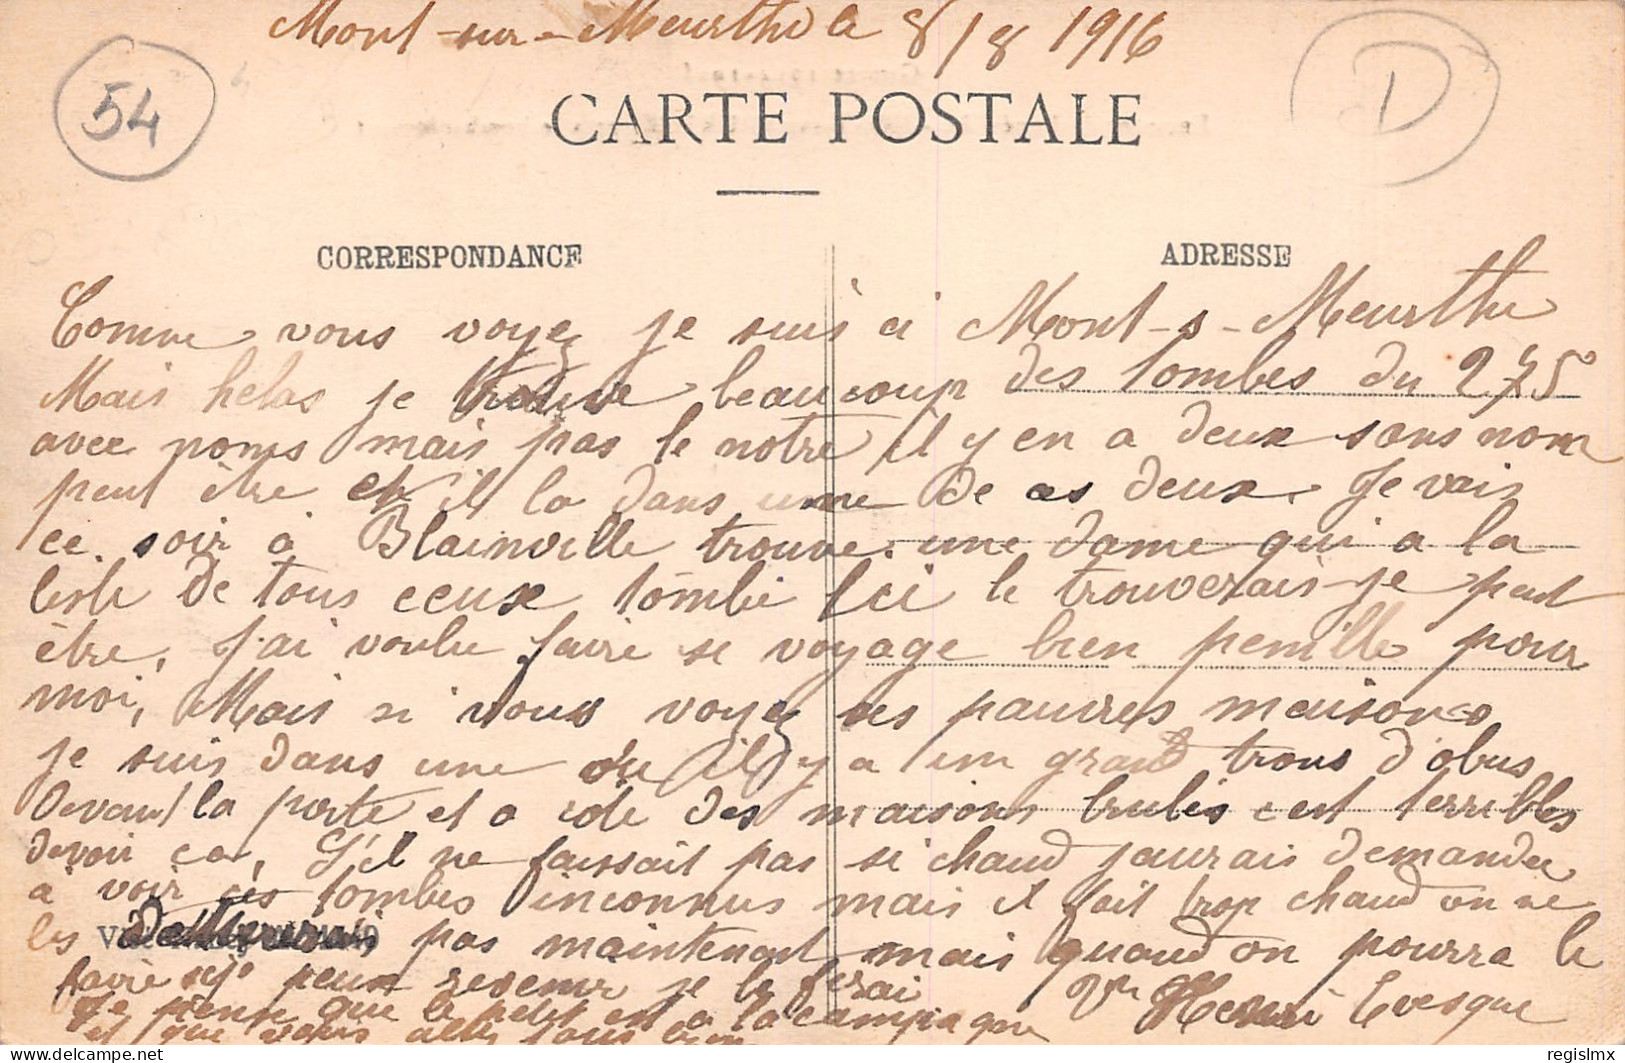 Mont-sur-Meurthe le 8/8 1916
54
D
CARTE POSTALE
CORRESPONDANCE
ADRESSE
Comme vous voyez je suis ici Mont-s-Meurthe
Mais helas je trouve beaucoup des tombes du 275°
avec noms mais pas le notre il y en a deux sans nom
peut être est il la dans une de ces deux. Je vais
ce soir à Blainville trouve une dame qui a la
liste de tous ceux tombé ici le trouverais-je peut
être, j'ai voulu faire se voyage bien penible pour
moi, Mais si vous voyez ses pauvres maisons
je suis dans une ou il y a un grand trous d'obus
devant la porte et a coté des maisons brulés c'est terribles
devoir ça, S'il ne faissait pas si chaud j'aurais demander
a voir ces tombes inconnus mais il fait trop chaud on ne
les pas maintenant mais quand on pourra le
faire si je peux revenir je le ferai
Je pense que le petit est a la campagne
et que vous allez tous
Vve Henri Evesque
regislmx
https://regislmx.delcampe.net